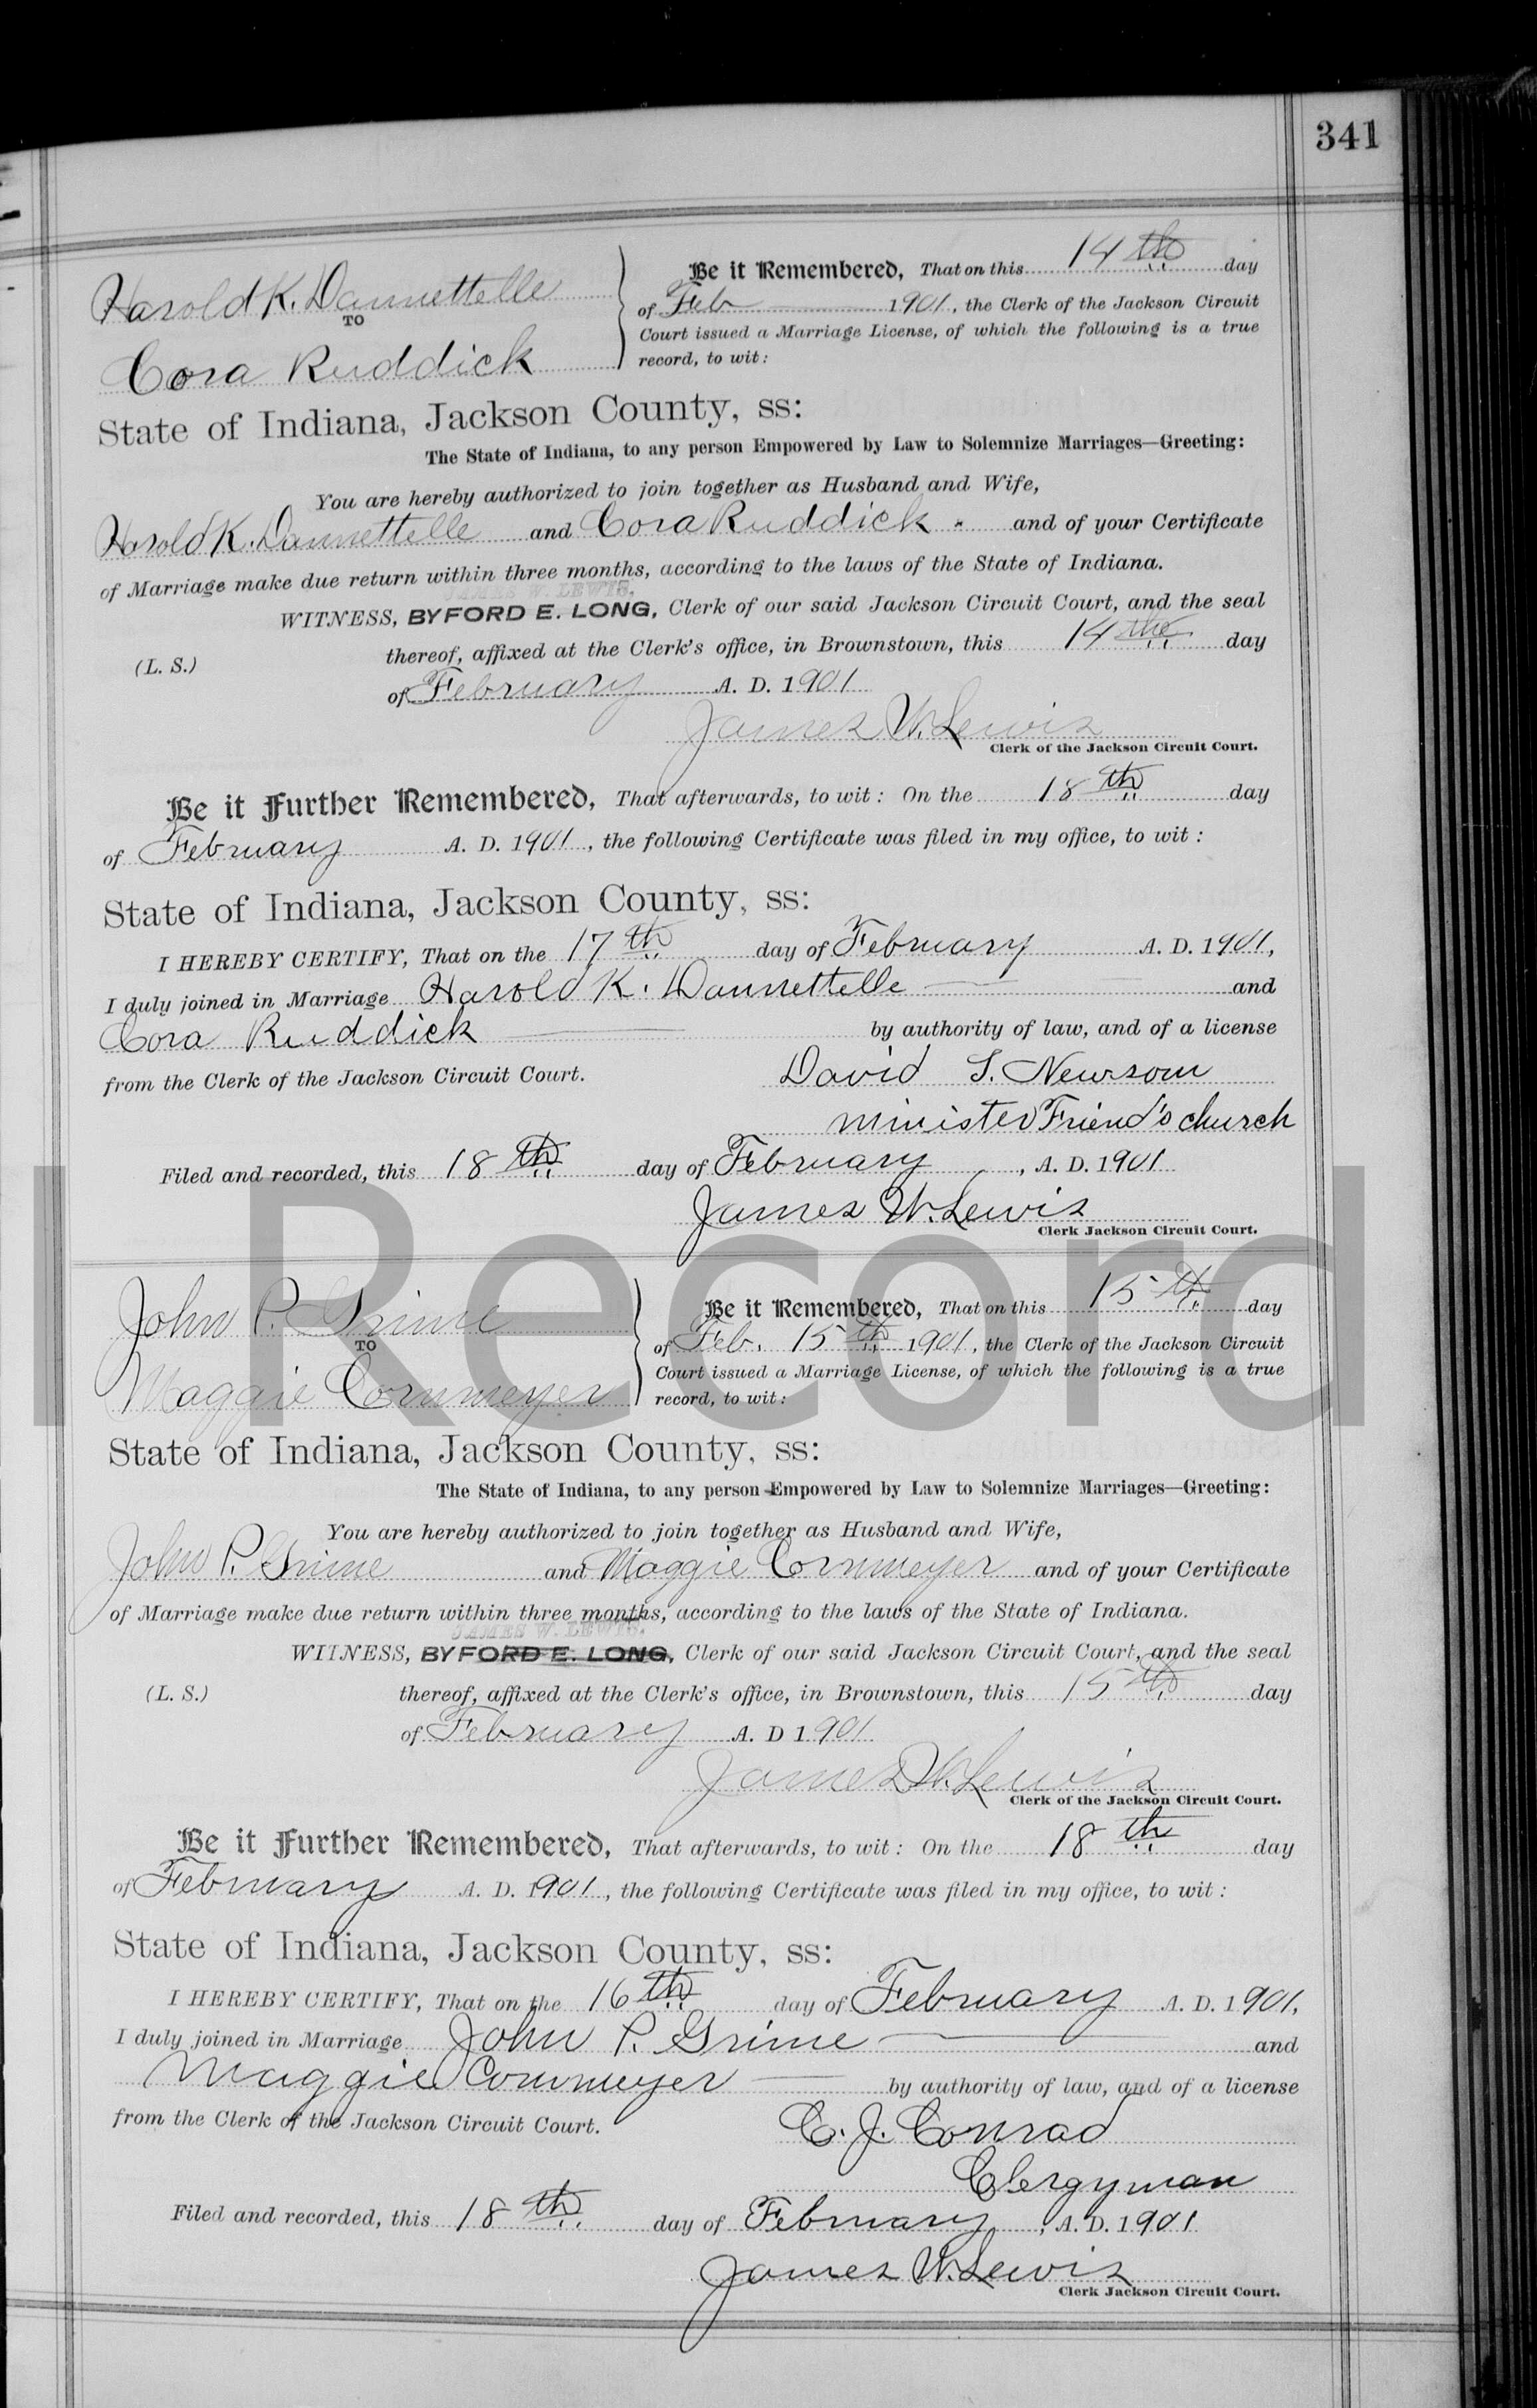 341
Harold K. Dannettelle
TO
Cora Ruddick
Be it Remembered, That on this 14th day
of Feb 1901, the Clerk of the Jackson Circuit
Court issued a Marriage License, of which the following is a true
record, to wit:
State of Indiana, Jackson County, ss:
The State of Indiana, to any person Empowered by Law to Solemnize Marriages—Greeting:
You are hereby authorized to join together as Husband and Wife,
Harold K. Dannettelle and Cora Ruddick and of your Certificate
of Marriage make due return within three months, according to the laws of the State of Indiana.
JAMES W. LEWIS,
WITNESS, BYFORD E. LONG, Clerk of our said Jackson Circuit Court, and the seal
(L. S.) thereof, affixed at the Clerk's office, in Brownstown, this 14th day
of February A. D. 1901
James W. Lewis
Clerk of the Jackson Circuit Court.
Be it Further Remembered, That afterwards, to wit: On the 18th day
of February A. D. 1901, the following Certificate was filed in my office, to wit:
State of Indiana, Jackson County, ss:
I HEREBY CERTIFY, That on the 17th day of February A. D. 1901,
I duly joined in Marriage Harold K. Dannettelle and
Cora Ruddick by authority of law, and of a license
from the Clerk of the Jackson Circuit Court. David S. Newsom
minister Friend's church
Filed and recorded, this 18th day of February, A. D. 1901
James W. Lewis
Clerk Jackson Circuit Court.
Record
John P. Grime
TO
Maggie Cornmeyer
Be it Remembered, That on this 15th day
of Feb. 15th 1901, the Clerk of the Jackson Circuit
Court issued a Marriage License, of which the following is a true
record, to wit:
State of Indiana, Jackson County, ss:
The State of Indiana, to any person Empowered by Law to Solemnize Marriages—Greeting:
You are hereby authorized to join together as Husband and Wife,
John P. Grime and Maggie Cornmeyer and of your Certificate
of Marriage make due return within three months, according to the laws of the State of Indiana.
JAMES W. LEWIS.
WITNESS, BYFORD E. LONG, Clerk of our said Jackson Circuit Court, and the seal
(L. S.) thereof, affixed at the Clerk's office, in Brownstown, this 15th day
of February A. D 1901
James W. Lewis
Clerk of the Jackson Circuit Court.
Be it Further Remembered, That afterwards, to wit: On the 18th day
of February A. D. 1901, the following Certificate was filed in my office, to wit:
State of Indiana, Jackson County, ss:
I HEREBY CERTIFY, That on the 16th day of February A. D. 1901,
I duly joined in Marriage John P. Grime and
Maggie Cornmeyer by authority of law, and of a license
from the Clerk of the Jackson Circuit Court. C. J. Conrad
Clergyman
Filed and recorded, this 18th day of February, A. D. 1901
James W. Lewis
Clerk Jackson Circuit Court.